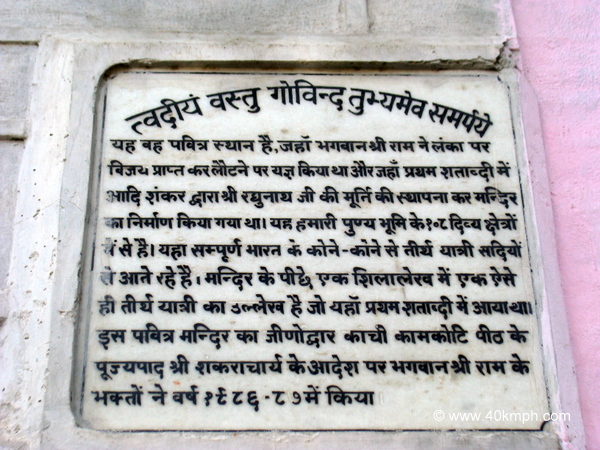 त्वदीयं वस्तु गोविन्द तुभ्यमेव समर्पये
यह वह पवित्र स्थान है, जहाँ भगवान श्री राम ने लंका पर
विजय प्राप्त कर लौटने पर यज्ञ किया था और जहाँ प्रथम शताब्दी में
आदि शंकर द्वारा श्री रघुनाथ जी की मूर्ति की स्थापना कर मन्दिर
का निर्माण किया गया था। यह हमारी पुण्य भूमि के १०८ दिव्य क्षेत्रों
में से है। यहा सम्पूर्ण भारत के कोने-कोने से तीर्थ यात्री सदियों
से आते रहे है। मन्दिर के पीछे एक शिलालेख में एक ऐसे
ही तीर्थ यात्री का उल्लेख है जो यहाँ प्रथम शताब्दी में आया था।
इस पवित्र मन्दिर का जीणोद्वार काची कामकोटि पीठ के
पूज्यपाद श्री शकराचार्य के आदेश पर भगवान श्री राम के
भक्तों ने वर्ष १९८६-८७ में किया
© www.40kmph.com